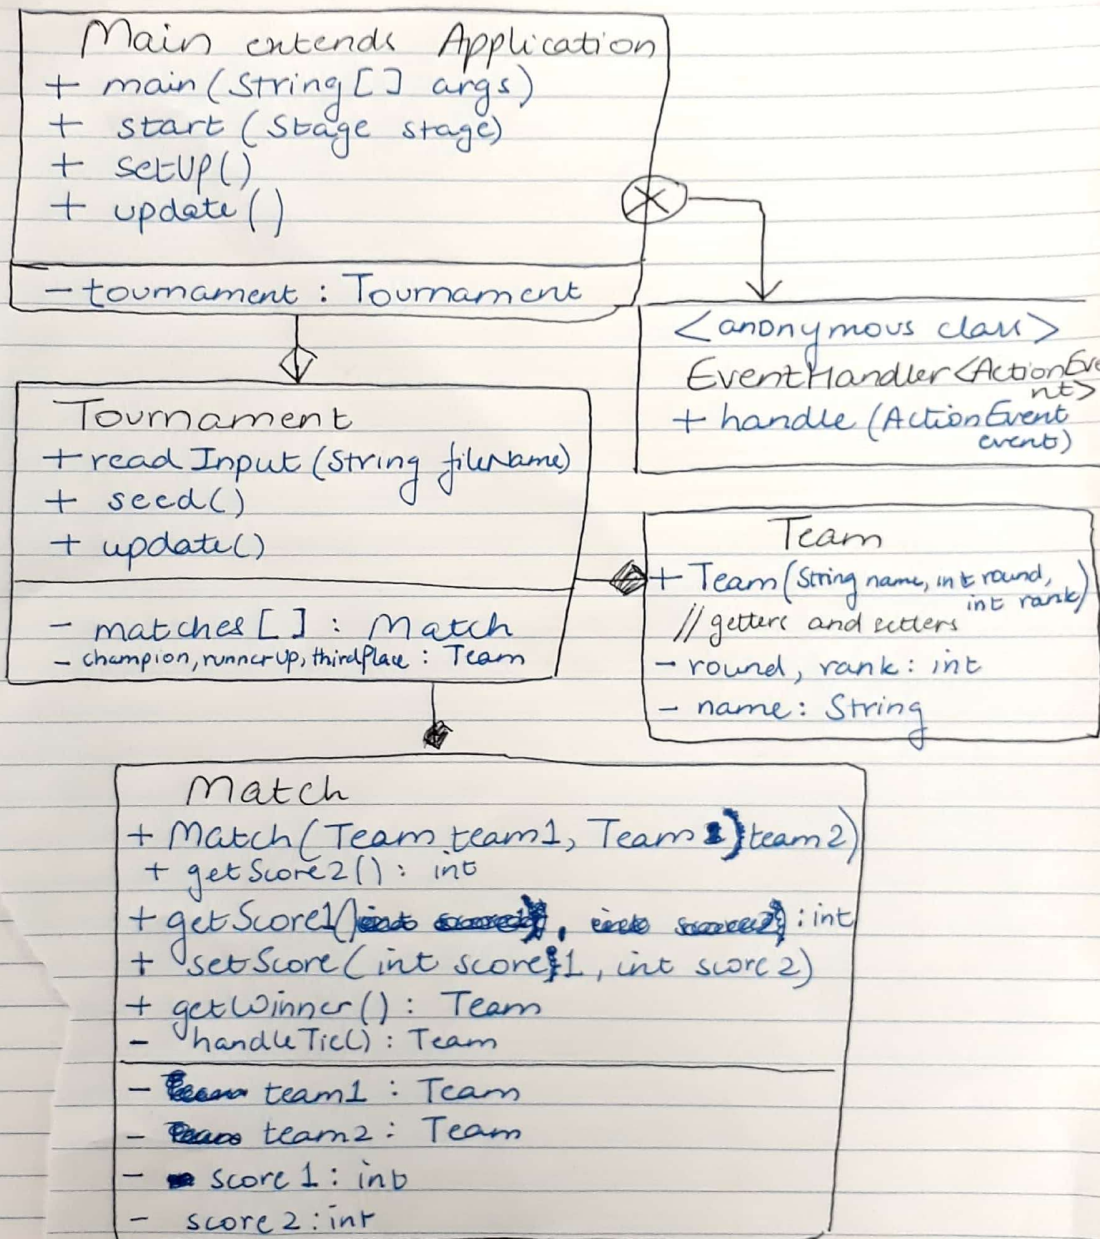 Main extends Application
+ main(String[] args)
+ start (Stage stage)
+ setUp()
+ update()
- tournament : Tournament
<anonymous class>
EventHandler<ActionEve
nt>
+ handle (ActionEvent
event)
Tournament
+ readInput (String fileName)
+ seed()
+ update()
- matches[] : Match
- champion, runnerUp, thirdPlace : Team
Team
+ Team(String name, int round,
int rank)
// getters and setters
- round, rank : int
- name : String
Match
+ Match(Team team1, Team team2)
+ getScore2() : int
+ getScore1() : int
+ setScore(int score1, int score2)
+ getWinner() : Team
- handleTie() : Team
- team1 : Team
- team2 : Team
- score1 : int
- score2 : int